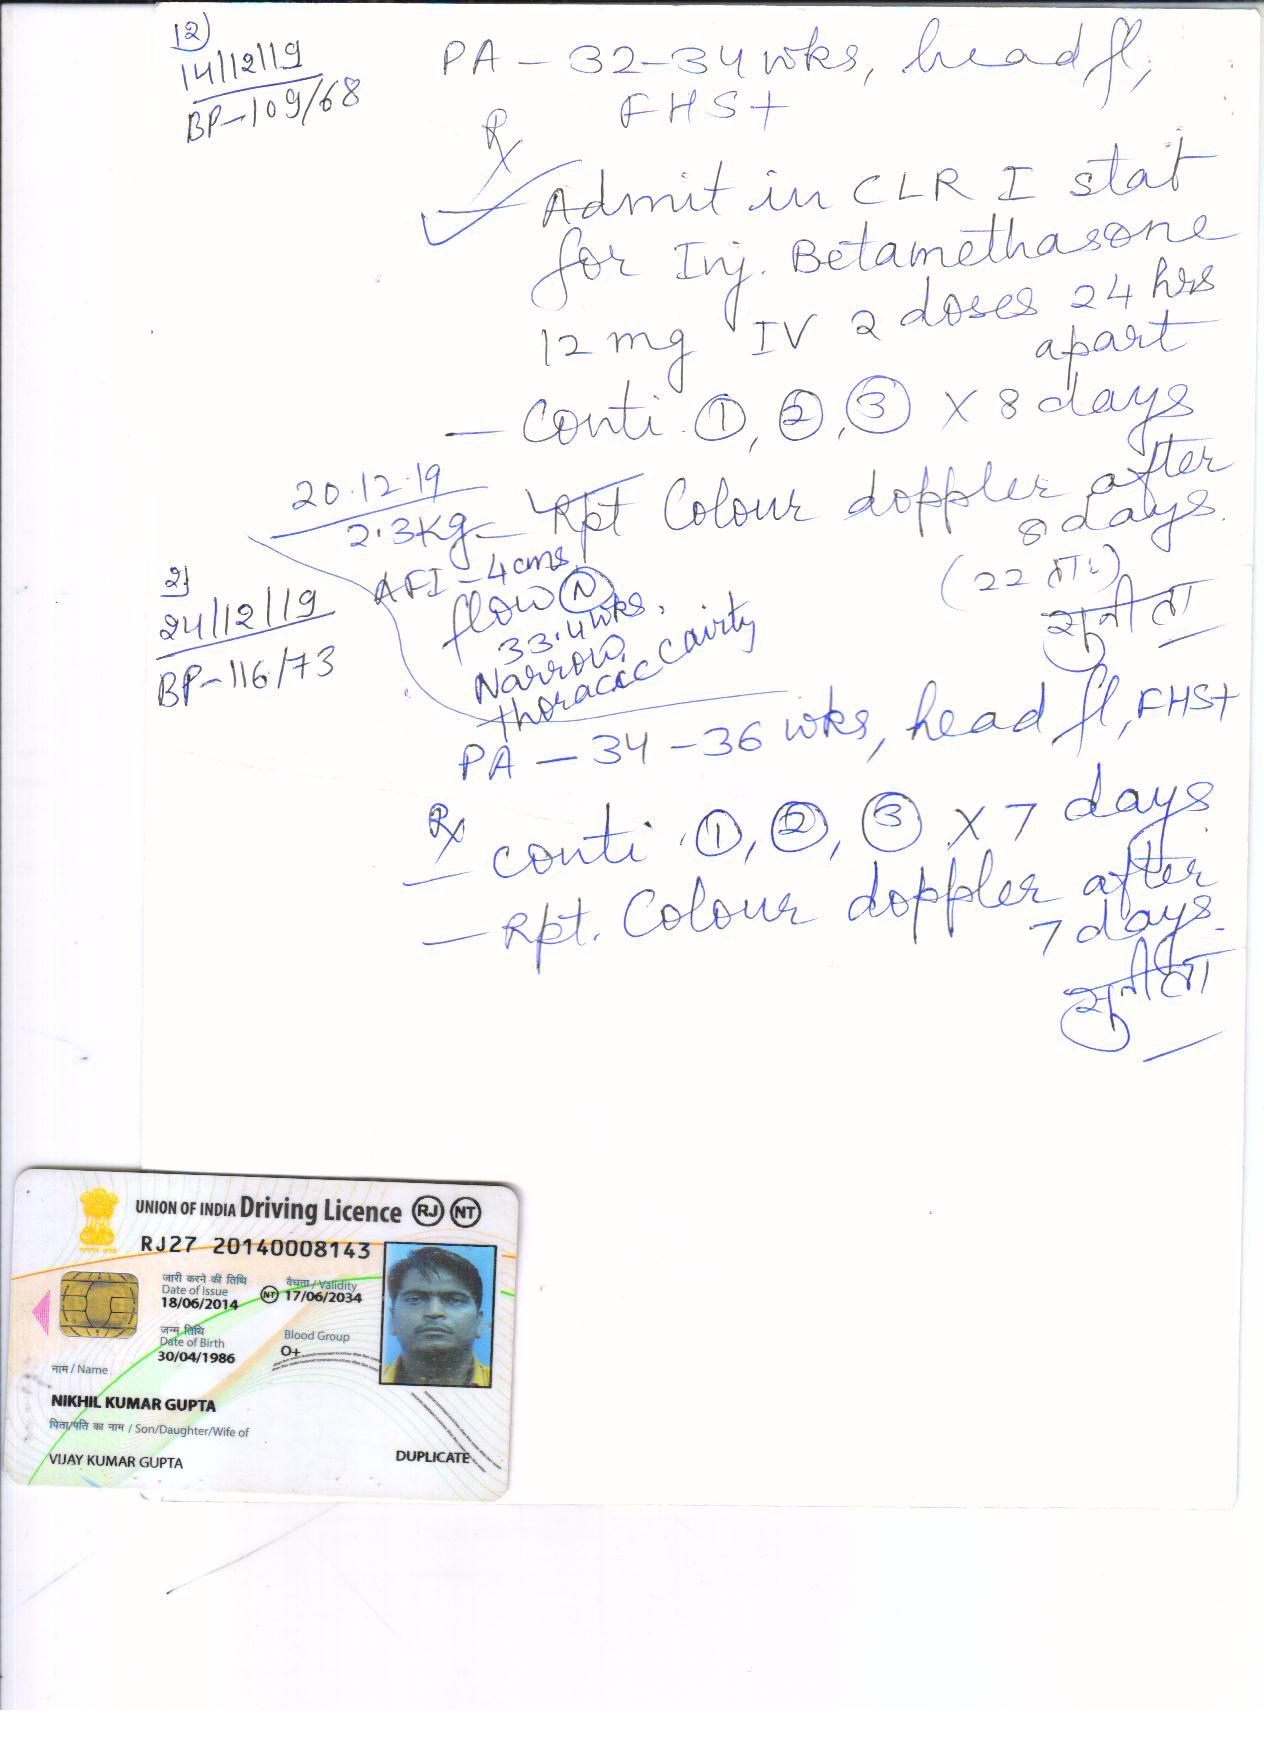 12)
14/12/19
BP-109/68
PA - 32-34 wks, head fl,
FHS+
Rx
Admit in CLR I stat
for Inj. Betamethasone
12 mg IV 2 doses 24 hrs
apart
- Conti. ①, ②, ③ X 8 days
- Rpt Colour doppler after
8 days
(22 ता:)
सुनीता
20.12.19
2.3Kg
AFI - 4 cms
flow Ⓝ
33.4 wks.
Narrow
thoracic cavity
2)
24/12/19
BP-116/73
PA - 34-36 wks, head fl, FHS+
Rx
- conti. ①, ②, ③ X 7 days
- Rpt. Colour doppler after
7 days.
सुनीता
UNION OF INDIA Driving Licence RJ NT
RJ27 20140008143
जारी करने की तिथि
Date of Issue
18/06/2014
वैधता / Validity
NT 17/06/2034
जन्म तिथि
Date of Birth
30/04/1986
Blood Group
O+
नाम / Name
NIKHIL KUMAR GUPTA
पिता/पति का नाम / Son/Daughter/Wife of
VIJAY KUMAR GUPTA
DUPLICATE